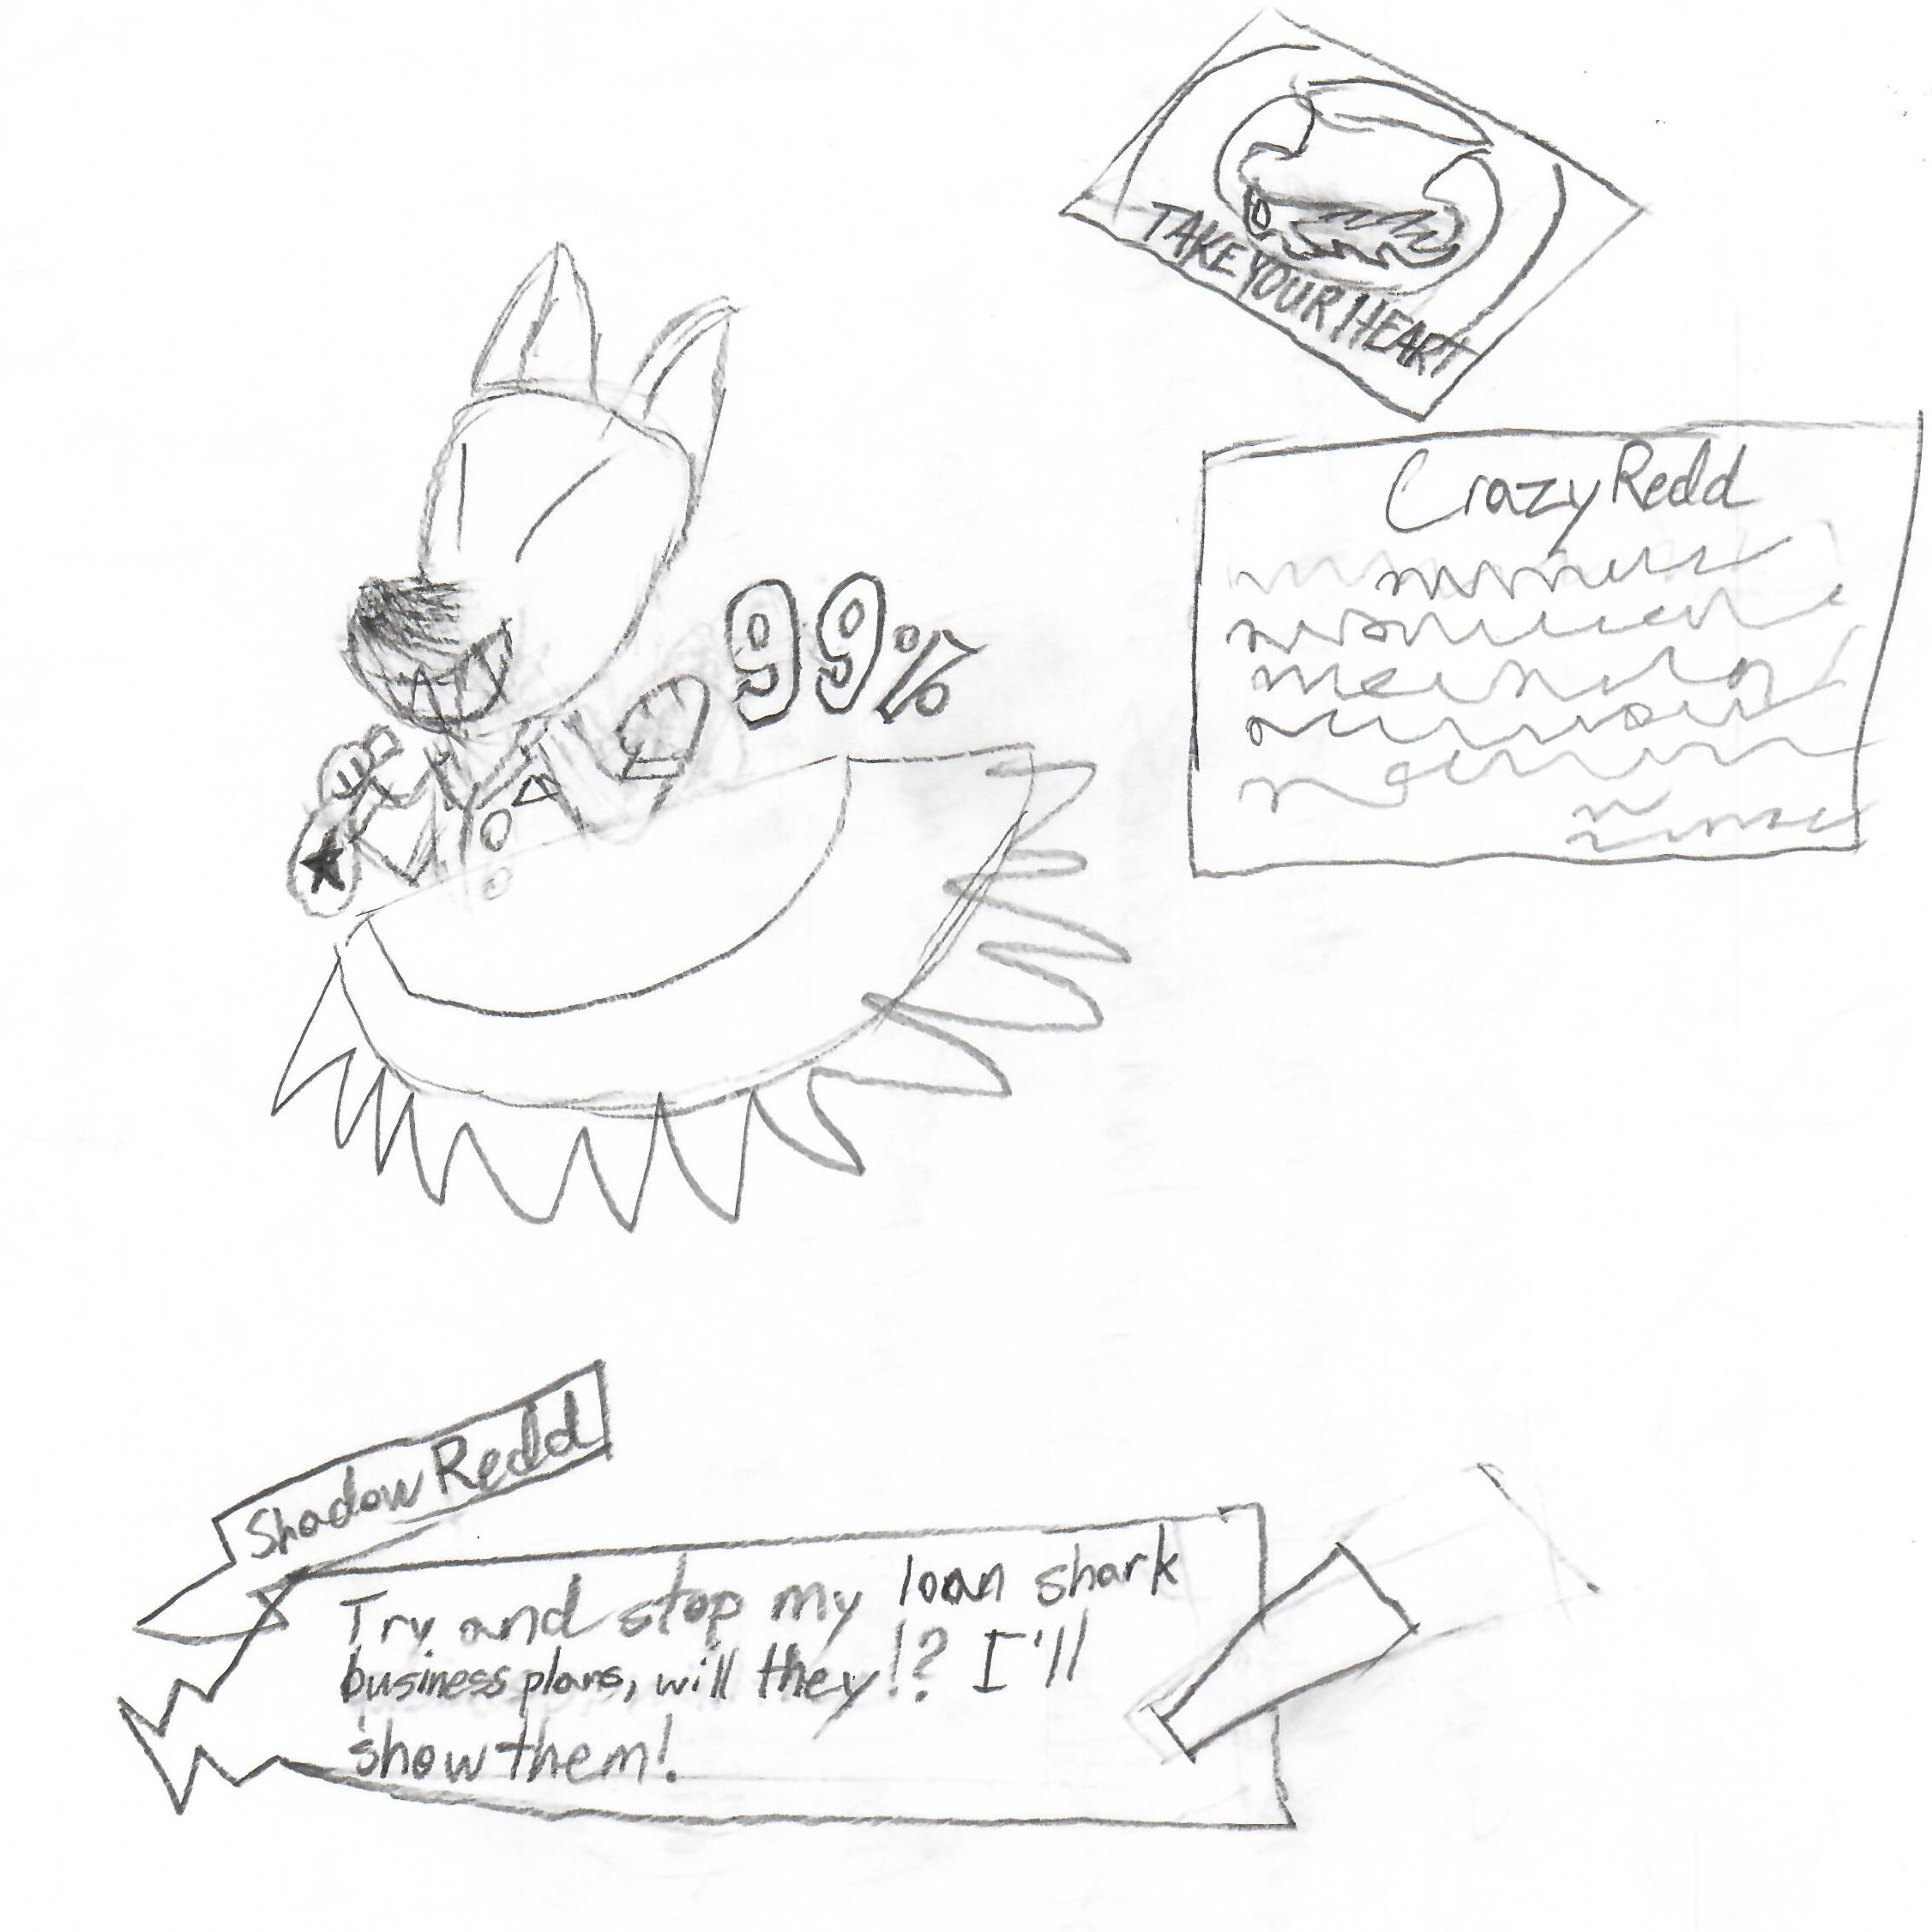 TAKE YOUR HEART
Crazy Redd
99%
Shadow Redd
Try and stop my loan shark
business plans, will they!? I'll
show them!